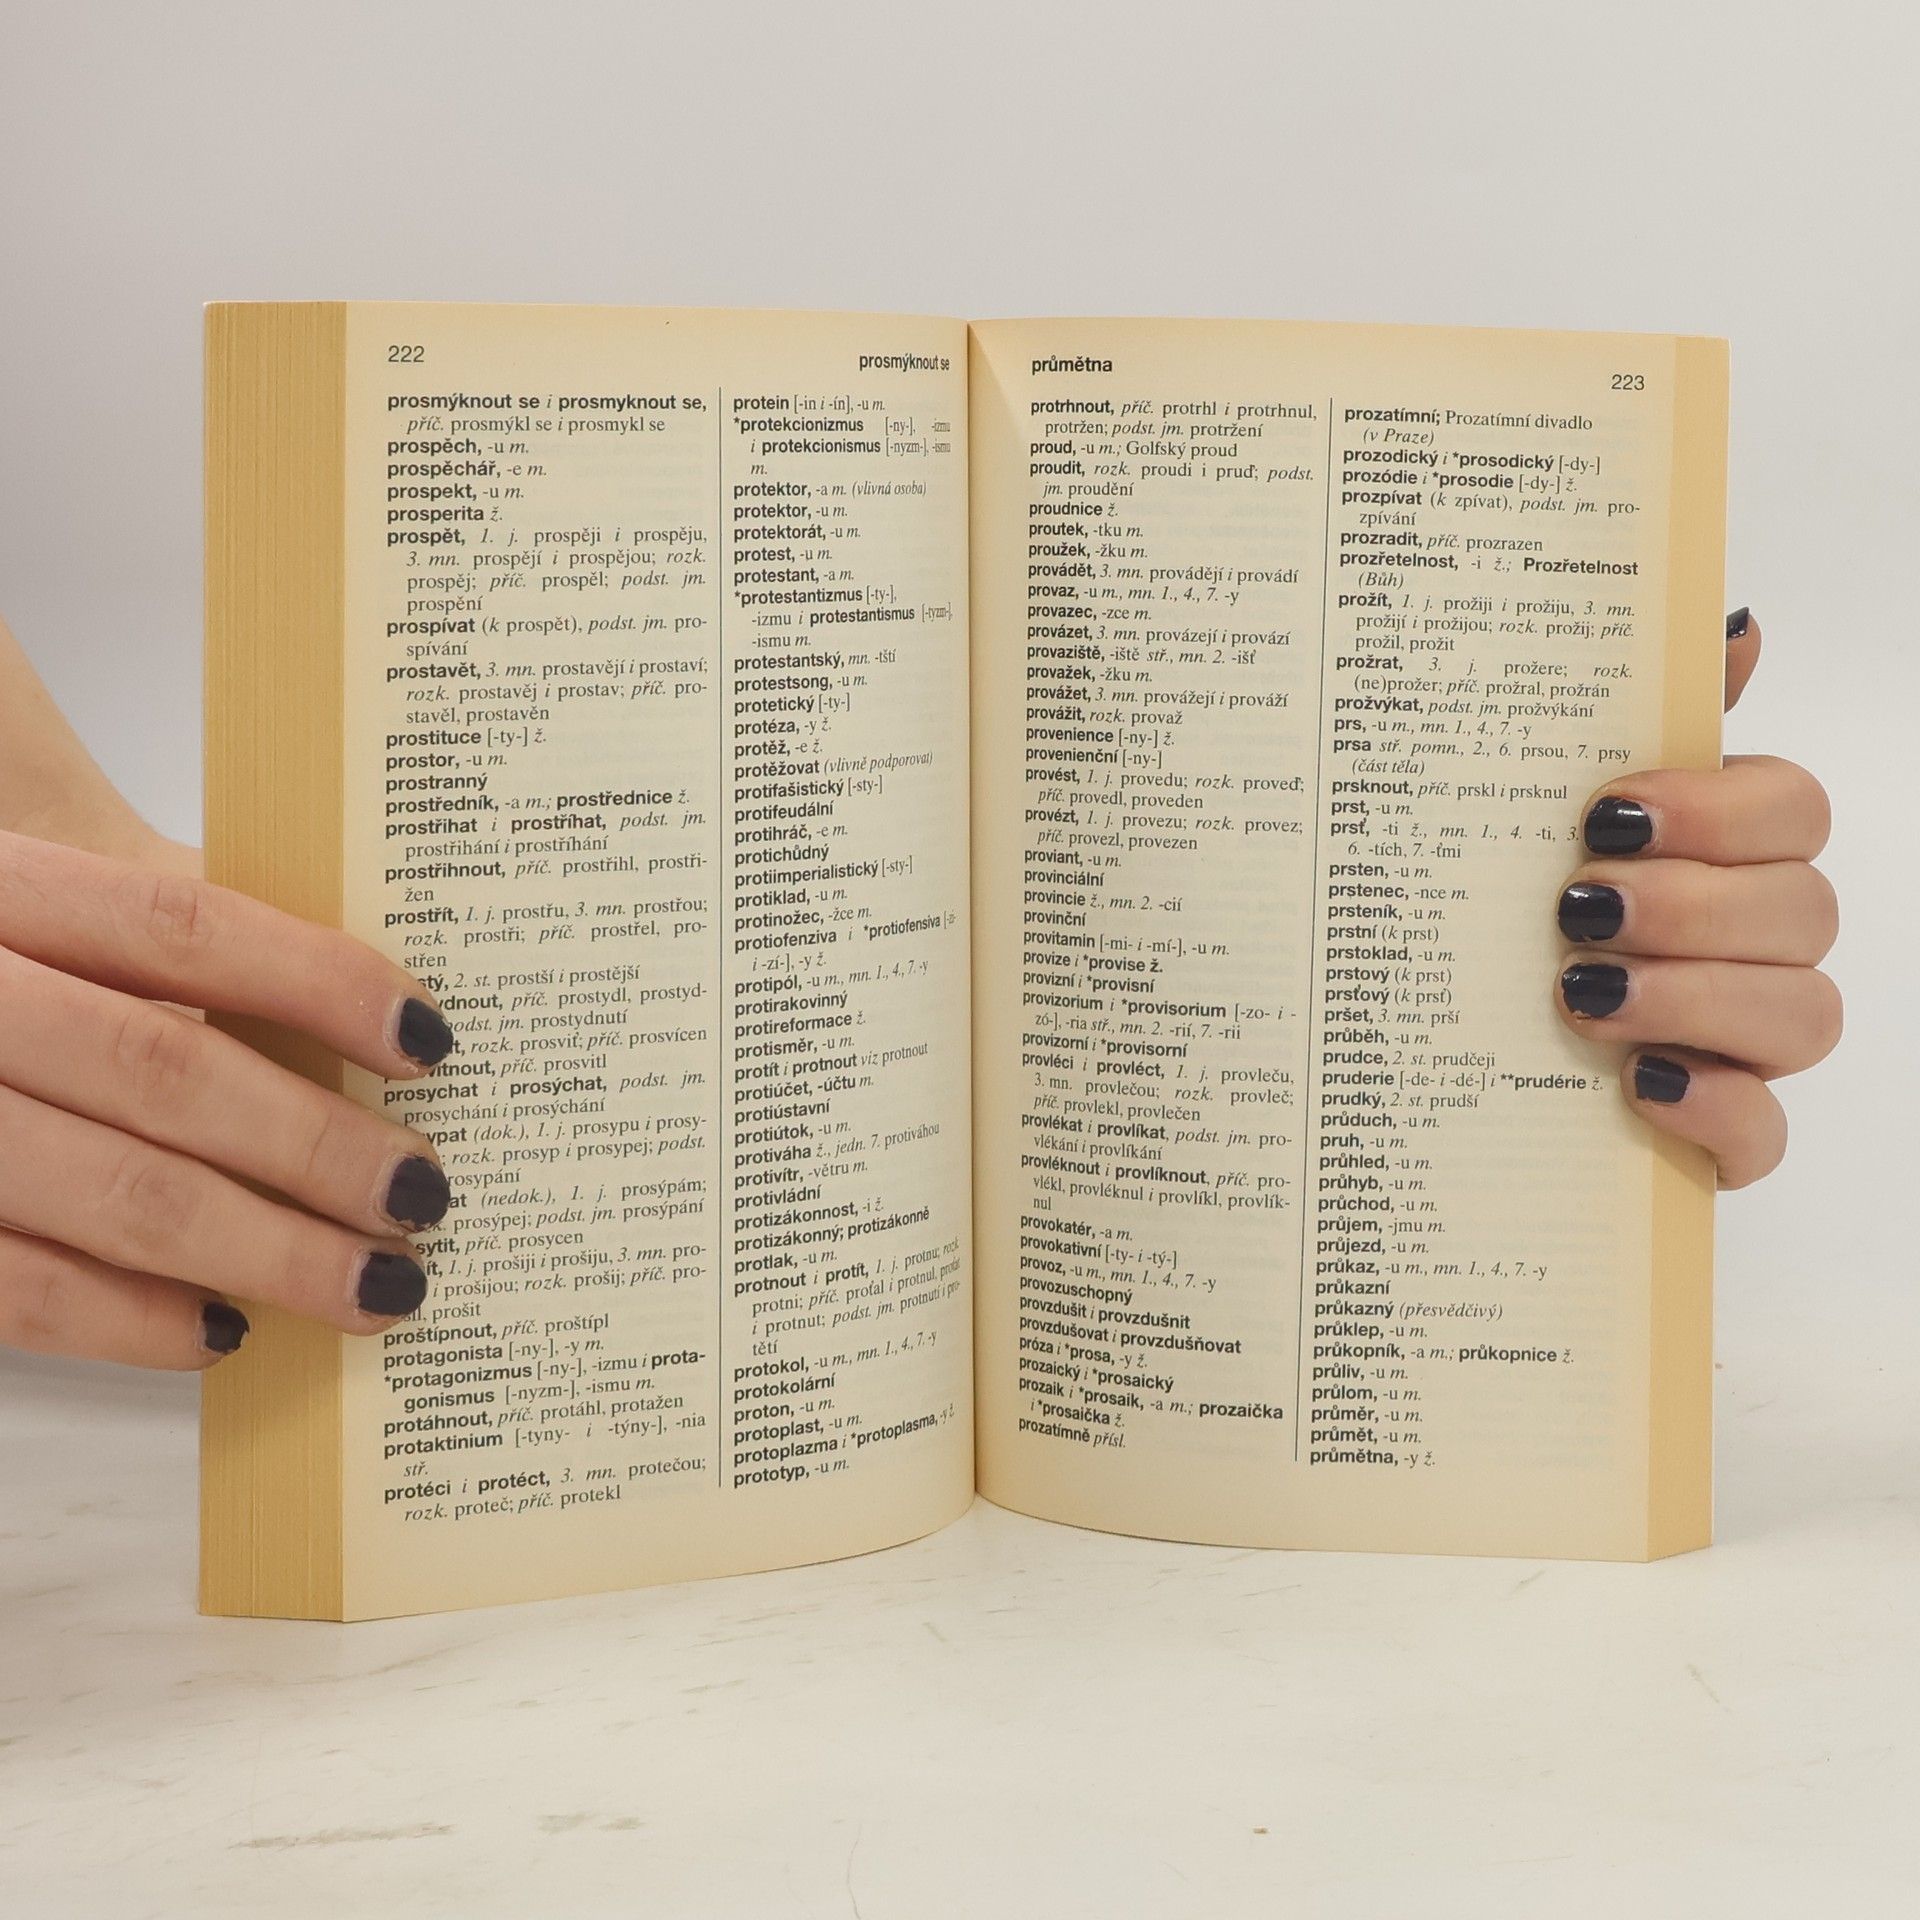 222
prosmýknout se
prosmýknout se i prosmyknout se,
příč. prosmýkl se i prosmykl se
prospěch, -u m.
prospěchář, -e m.
prospekt, -u m.
prosperita ž.
prospět, 1. j. prospěji i prospěju,
3. mn. prospějí i prospějou; rozk.
prospěj; příč. prospěl; podst. jm.
prospění
prospívat (k prospět), podst. jm. pro-
spívání
prostavět, 3. mn. prostavějí i prostaví;
rozk. prostavěj i prostav; příč. pro-
stavěl, prostavěn
prostituce [-ty-] ž.
prostor, -u m.
prostranný
prostředník, -a m.; prostřednice ž.
prostřihat i prostříhat, podst. jm.
prostřihání i prostříhání
prostřihnout, příč. prostřihl, prostři-
žen
prostřít, 1. j. prostřu, 3. mn. prostřou;
rozk. prostři; příč. prostřel, pro-
střen
stý, 2. st. prostší i prostější
ydnout, příč. prostydl, prostyd-
podst. jm. prostydnutí
t, rozk. prosviť; příč. prosvícen
vitnout, příč. prosvitl
prosychat i prosýchat, podst. jm.
prosychání i prosýchání
ypat (dok.), 1. j. prosypu i prosy-
; rozk. prosyp i prosypej; podst.
rosypání
at (nedok.), 1. j. prosýpám;
k. prosýpej; podst. jm. prosýpání
sytit, příč. prosycen
ít, 1. j. prošiji i prošiju, 3. mn. pro-
i prošijou; rozk. prošij; příč. pro-
šil, prošit
proštípnout, příč. proštípl
protagonista [-ny-], -y m.
*protagonizmus [-ny-], -izmu i prota-
gonismus [-nyzm-], -ismu m.
protáhnout, příč. protáhl, protažen
protaktinium [-tyny- i -týny-], -nia
stř.
protéci i protéct, 3. mn. protečou;
rozk. proteč; příč. protekl
protein [-in i -ín], -u m.
*protekcionizmus [-ny-], -izmu
i protekcionismus [-nyzm-], -ismu
m.
protektor, -a m. (vlivná osoba)
protektor, -u m.
protektorát, -u m.
protest, -u m.
protestant, -a m.
*protestantizmus [-ty-],
-izmu i protestantismus [-tyzm-],
-ismu m.
protestantský, mn. -tští
protestsong, -u m.
protetický [-ty-]
protéza, -y ž.
protěž, -e ž.
protěžovat (vlivně podporovat)
protifašistický [-sty-]
protifeudální
protihráč, -e m.
protichůdný
protiimperialistický [-sty-]
protiklad, -u m.
protinožec, -žce m.
protiofenziva i *protiofensiva [-zi-
i -zí-], -y ž.
protipól, -u m., mn. 1., 4., 7. -y
protirakovinný
protireformace ž.
protisměr, -u m.
protít i protnout viz protnout
protiúčet, -účtu m.
protiústavní
protiútok, -u m.
protiváha ž., jedn. 7. protiváhou
protivítr, -větru m.
protivládní
protizákonnost, -i ž.
protizákonný; protizákonně
protlak, -u m.
protnout i protít, 1. j. protnu; rozk.
protni; příč. proťal i protnul, proťat
i protnut; podst. jm. protnutí i pro-
tětí
protokol, -u m., mn. 1., 4., 7. -y
protokolární
proton, -u m.
protoplast, -u m.
protoplazma i *protoplasma, -y ž.
prototyp, -u m.
průmětna
223
protrhnout, příč. protrhl i protrhnul,
protržen; podst. jm. protržení
proud, -u m.; Golfský proud
proudit, rozk. proudi i pruď; podst.
jm. proudění
proudnice ž.
proutek, -tku m.
proužek, -žku m.
provádět, 3. mn. provádějí i provádí
provaz, -u m., mn. 1., 4., 7. -y
provazec, -zce m.
provázet, 3. mn. provázejí i provází
provaziště, -iště stř., mn. 2. -išť
provažek, -žku m.
provážet, 3. mn. provážejí i prováží
provážit, rozk. provaž
provenience [-ny-] ž.
provenienční [-ny-]
provést, 1. j. provedu; rozk. proveď;
příč. provedl, proveden
provézt, 1. j. provezu; rozk. provez;
příč. provezl, provezen
proviant, -u m.
provinciální
provincie ž., mn. 2. -cií
provinční
provitamin [-mi- i -mí-], -u m.
provize i *provise ž.
provizní i *provisní
provizorium i *provisorium [-zo- i -
zó-], -ria stř., mn. 2. -rií, 7. -rii
provizorní i *provisorní
provléci i provléct, 1. j. provleču,
3. mn. provlečou; rozk. provleč;
příč. provlekl, provlečen
provlékat i provlíkat, podst. jm. pro-
vlékání i provlíkání
provléknout i provlíknout, příč. pro-
vlékl, provléknul i provlíkl, provlík-
nul
provokatér, -a m.
provokativní [-ty- i -tý-]
provoz, -u m., mn. 1., 4., 7. -y
provozuschopný
provzdušit i provzdušnit
provzdušovat i provzdušňovat
próza i *prosa, -y ž.
prozaický i *prosaický
prozaik i *prosaik, -a m.; prozaička
i *prosaička ž.
prozatímně přísl.
prozatímní; Prozatímní divadlo
(v Praze)
prozodický i *prosodický [-dy-]
prozódie i *prosodie [-dy-] ž.
prozpívat (k zpívat), podst. jm. pro-
zpívání
prozradit, příč. prozrazen
prozřetelnost, -i ž.; Prozřetelnost
(Bůh)
prožít, 1. j. prožiji i prožiju, 3. mn.
prožijí i prožijou; rozk. prožij; příč.
prožil, prožit
prožrat, 3. j. prožere; rozk.
(ne)prožer; příč. prožral, prožrán
prožvýkat, podst. jm. prožvýkání
prs, -u m., mn. 1., 4., 7. -y
prsa stř. pomn., 2., 6. prsou, 7. prsy
(část těla)
prsknout, příč. prskl i prsknul
prst, -u m.
prsť, -ti ž., mn. 1., 4. -ti, 3.
6. -tích, 7. -ťmi
prsten, -u m.
prstenec, -nce m.
prsteník, -u m.
prstní (k prst)
prstoklad, -u m.
prstový (k prst)
prsťový (k prsť)
pršet, 3. mn. prší
průběh, -u m.
prudce, 2. st. prudčeji
pruderie [-de- i -dé-] i **prudérie ž.
prudký, 2. st. prudší
průduch, -u m.
pruh, -u m.
průhled, -u m.
průhyb, -u m.
průchod, -u m.
průjem, -jmu m.
průjezd, -u m.
průkaz, -u m., mn. 1., 4., 7. -y
průkazní
průkazný (přesvědčivý)
průklep, -u m.
průkopník, -a m.; průkopnice ž.
průliv, -u m.
průlom, -u m.
průměr, -u m.
průmět, -u m.
průmětna, -y ž.